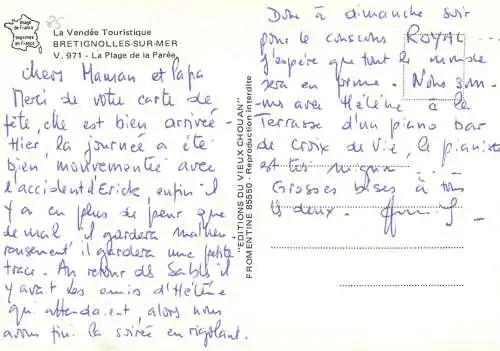 image
de France
imagerie
en France
La Vendée Touristique
BRETIGNOLLES-SUR-MER
V. 971 - La Plage de la Parée
chers Maman et Papa
Merci de votre carte de
fête, elle est bien arrivée -
Hier, la journée a été
bien mouvementée avec
l'accident d'Erick, enfin il
y a eu plus de peur que
de mal. il gardera malheu-
reusement il gardera une petite
trace. Au retour des Sables il
y avait des amis d'Hélène
qui attendaient, alors nous
avons fini la soirée en rigolant.
"EDITIONS DU VIEUX CHOUAN"
FROMENTINE 85550 - Reproduction Interdite
Donc à dimanche soir
pour le couscous ROYAL...
j'espère que tout le monde
sera en forme. Nous som-
mes avec Hélène à la
Terrasse d'un piano bar
de Croix de Vie, le pianiste
est très mignon...
Grosses bises à tous
les deux.